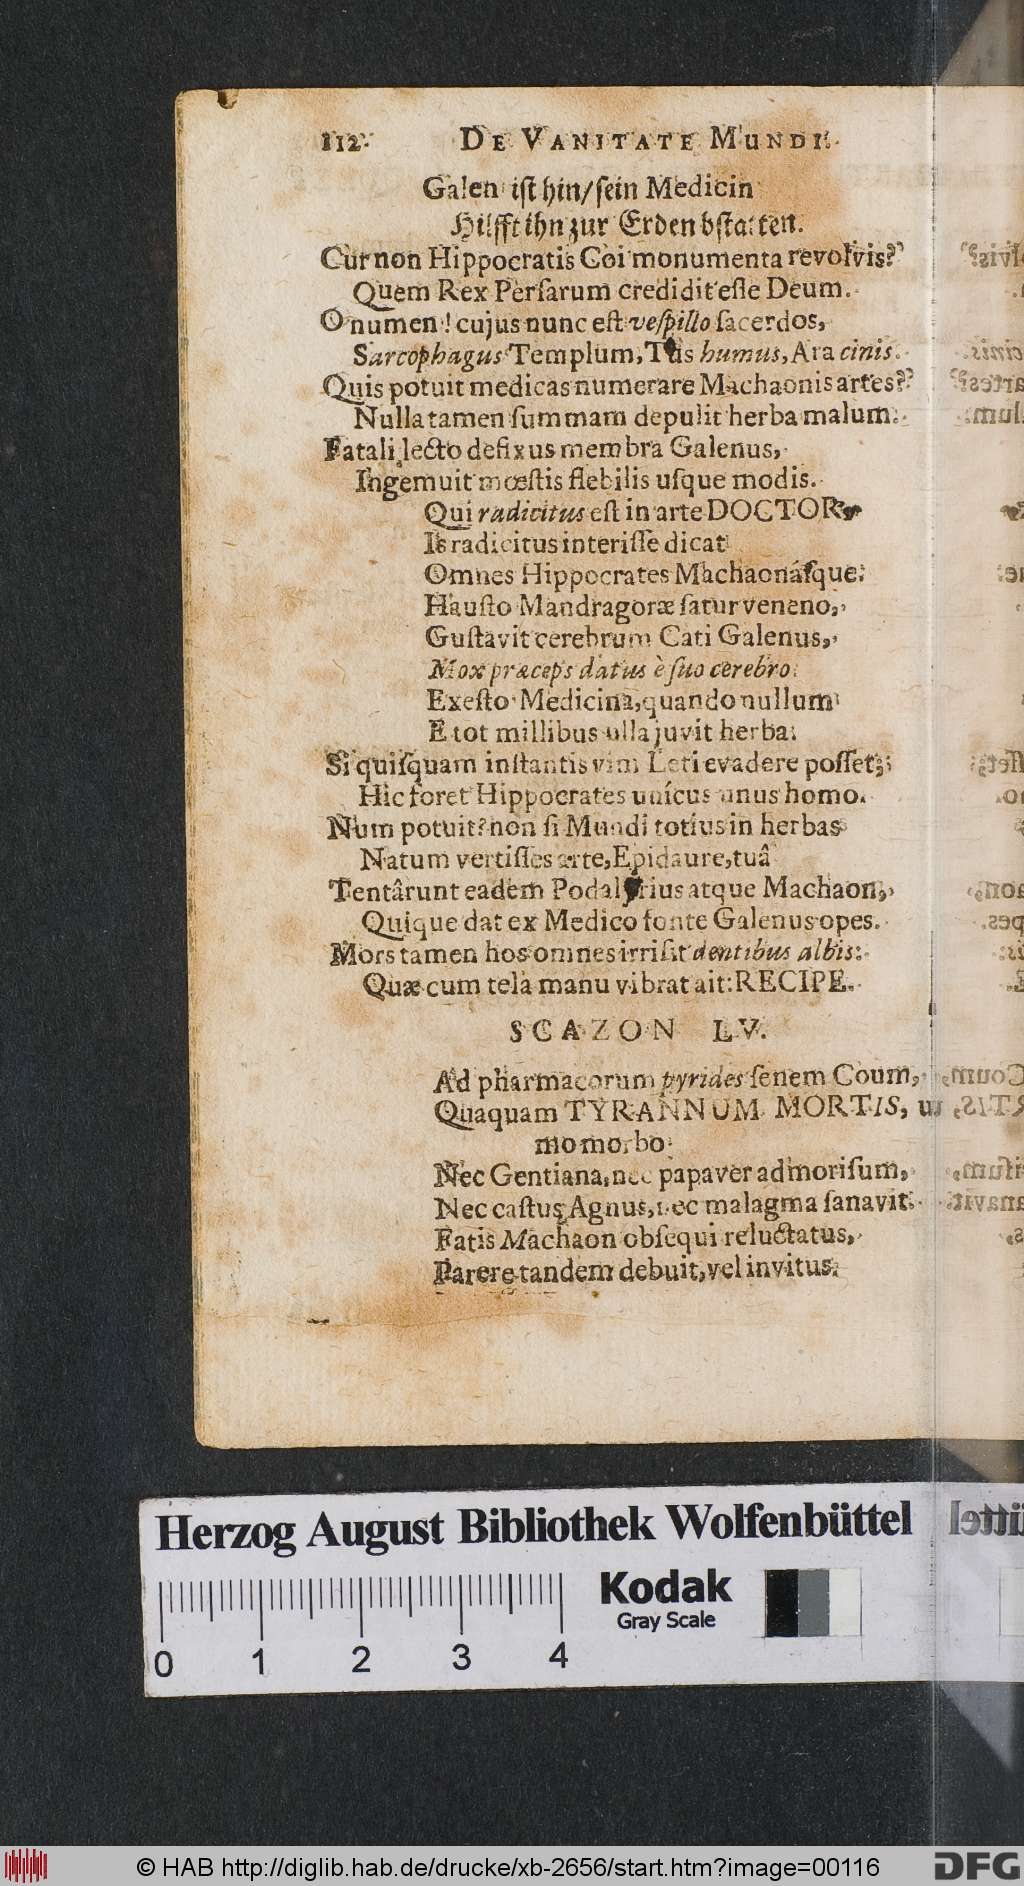 112. DE VANITATE MUNDI.
Galen ist hin/sein Medicin
Hilfft ihn zur Erden bstatten.
Cur non Hippocratis Coi monumenta revolvis?
Quem Rex Perſarum credidit eſſe Deum.
O numen! cujus nunc eſt veſpillo ſacerdos,
Sarcophagus Templum, Tus humus, Ara cinis.
Quis potuit medicas numerare Machaonis artes?
Nulla tamen ſummam depulit herba malum.
Fatali lecto defixus membra Galenus,
Ingemuit mœſtis flebilis uſque modis.
Qui radicitus eſt in arte DOCTOR
Is radicitus interiſſe dicat
Omnes Hippocrates Machaonáſque:
Hauſto Mandragoræ ſatur veneno,
Guſtavit cerebrum Cati Galenus,
Mox præceps datus è ſuo cerebro:
Exeſto Medicina, quando nullum
E tot millibus ulla juvit herba.
Si quiſquam inſtantis vim Leti evadere poſſet;
Hic foret Hippocrates unícus unus homo.
Num potuit? non ſi Mundi totius in herbas
Natum vertiſſes arte, Epidaure, tuâ
Tentârunt eadem Podalyrius atque Machaon,
Quique dat ex Medico fonte Galenus opes.
Mors tamen hos omnes irriſit dentibus albis:
Quæ cum tela manu vibrat ait: RECIPE.
SCAZON LV.
Ad pharmacorum pyrides ſenem Coum,
Quaquam TYRANNUM MORTIS,
mo morbo
Nec Gentiana, nec papaver admoriſum,
Nec caſtus Agnus, nec malagma ſanavit.
Fatis Machaon obſequi reluctatus,
Parere tandem debuit, vel invitus.
Herzog August Bibliothek Wolfenbüttel
Kodak
Gray Scale
0 1 2 3 4
© HAB http://diglib.hab.de/drucke/xb-2656/start.htm?image=00116
DFG